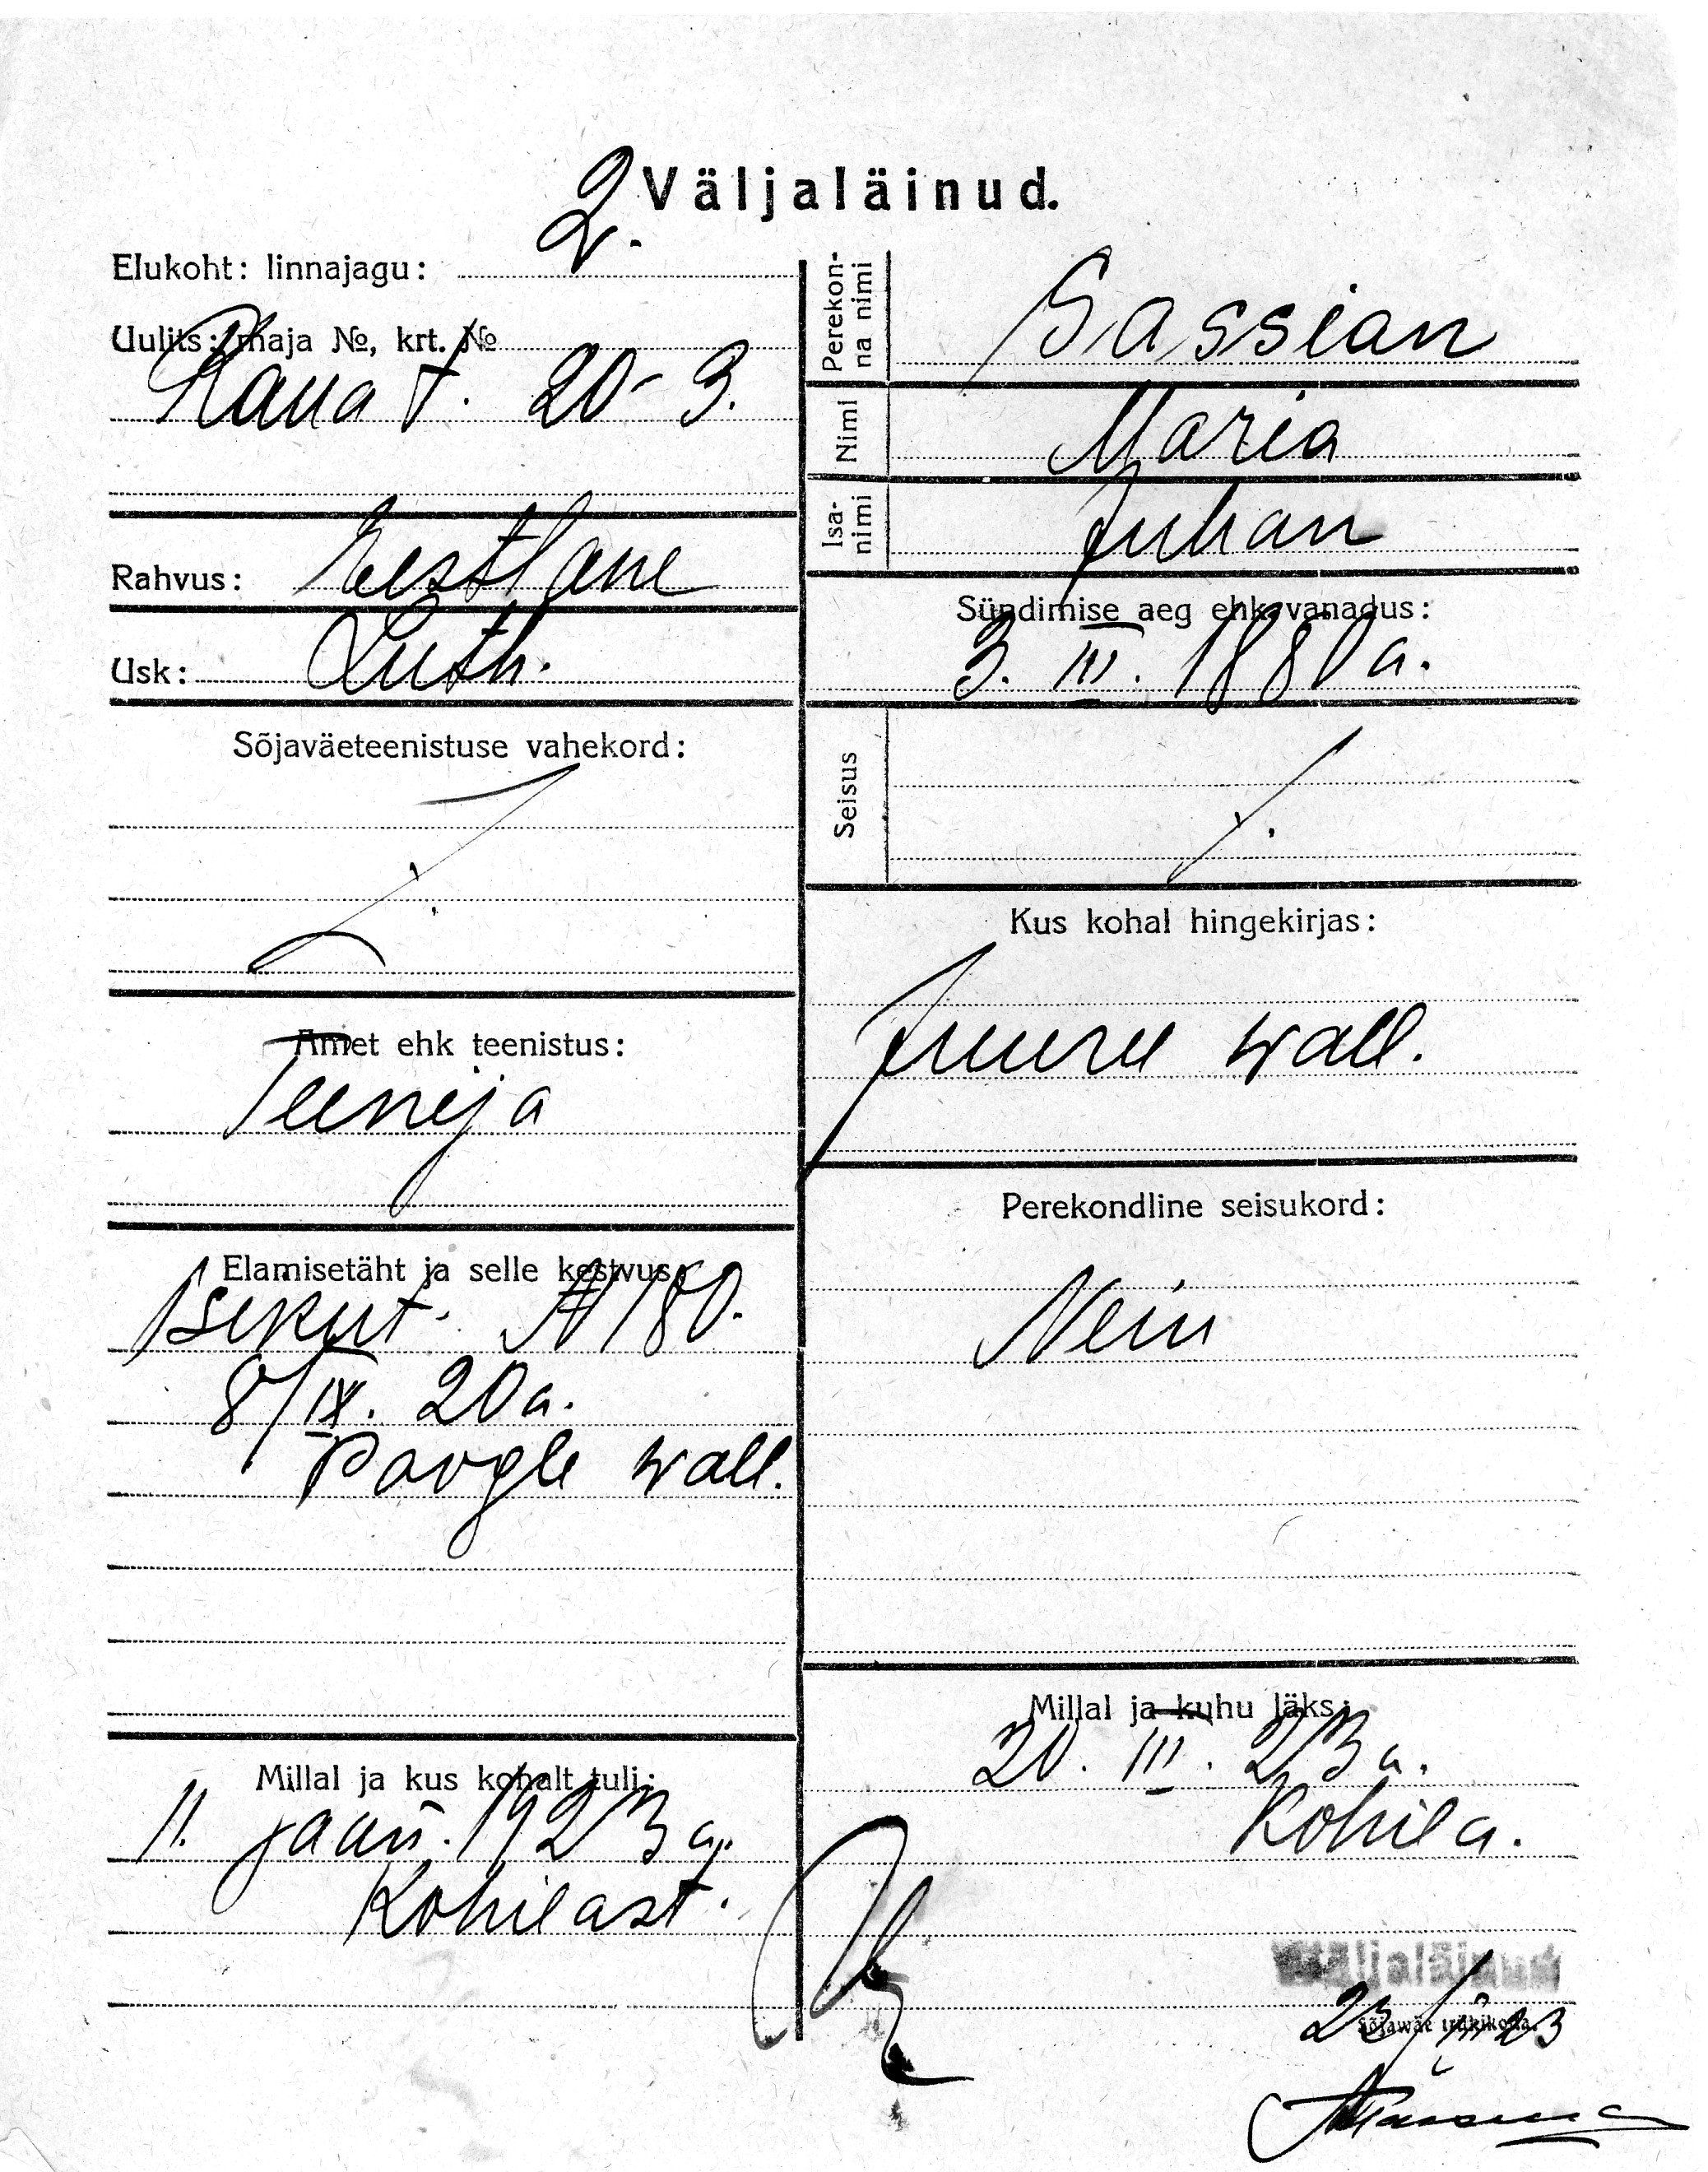 Väljaläinud.
Elukoht: linnajagu: 2.
Uulits: maja №, krt. №
Raua t. 20-3.
Rahvus: Eestlane
Usk: Luth.
Sõjaväeteenistuse vahekord:
Amet ehk teenistus:
Teenija
Elamisetäht ja selle kestvus:
Isikut. N 180.
8/IX. 20 a.
wall.
Millal ja kus kohalt tuli:
11. jaan. 1923 a.
Kohilast.
Perekonna nimi
Sassian
Nimi
Maria
Isanimi
Juhan
Sündimise aeg ehk vanadus:
3. III. 1880 a.
Seisus
Kus kohal hingekirjas:
Juuru wall.
Perekondline seisukord:
Nein
Millal ja kuhu läks:
20. III. 23 a.
Kohila.
Väljaläinud
Sõjawäe trükikoda.
23/III 23